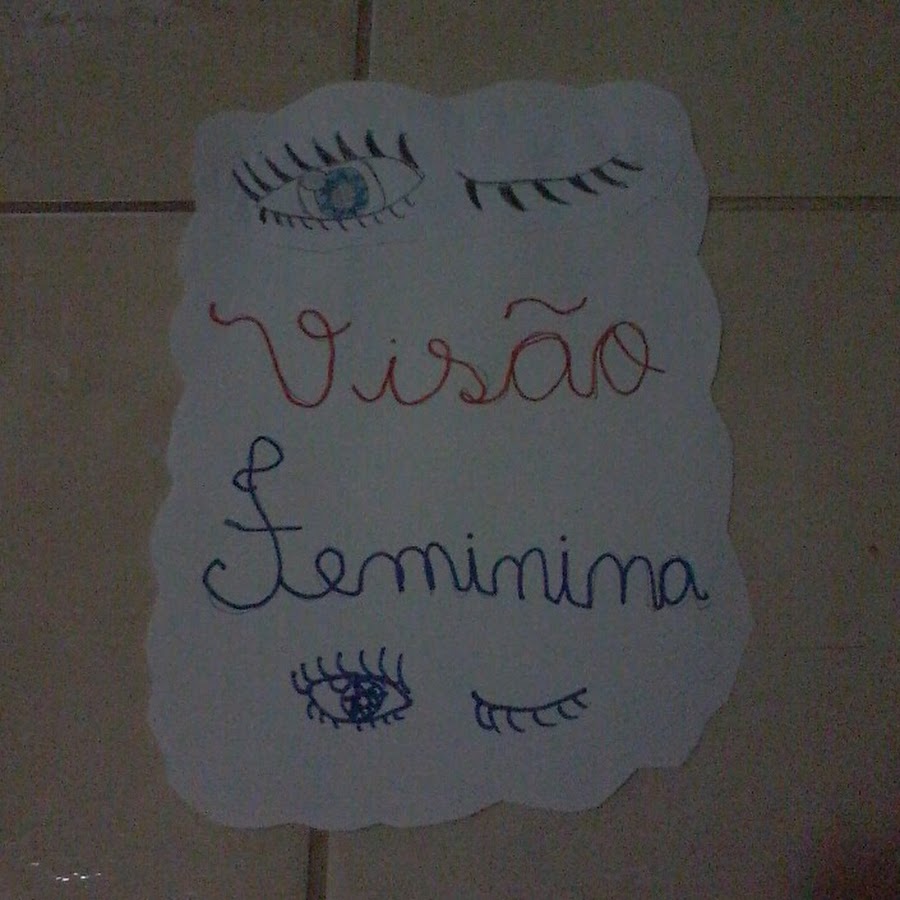 Visão
Feminina